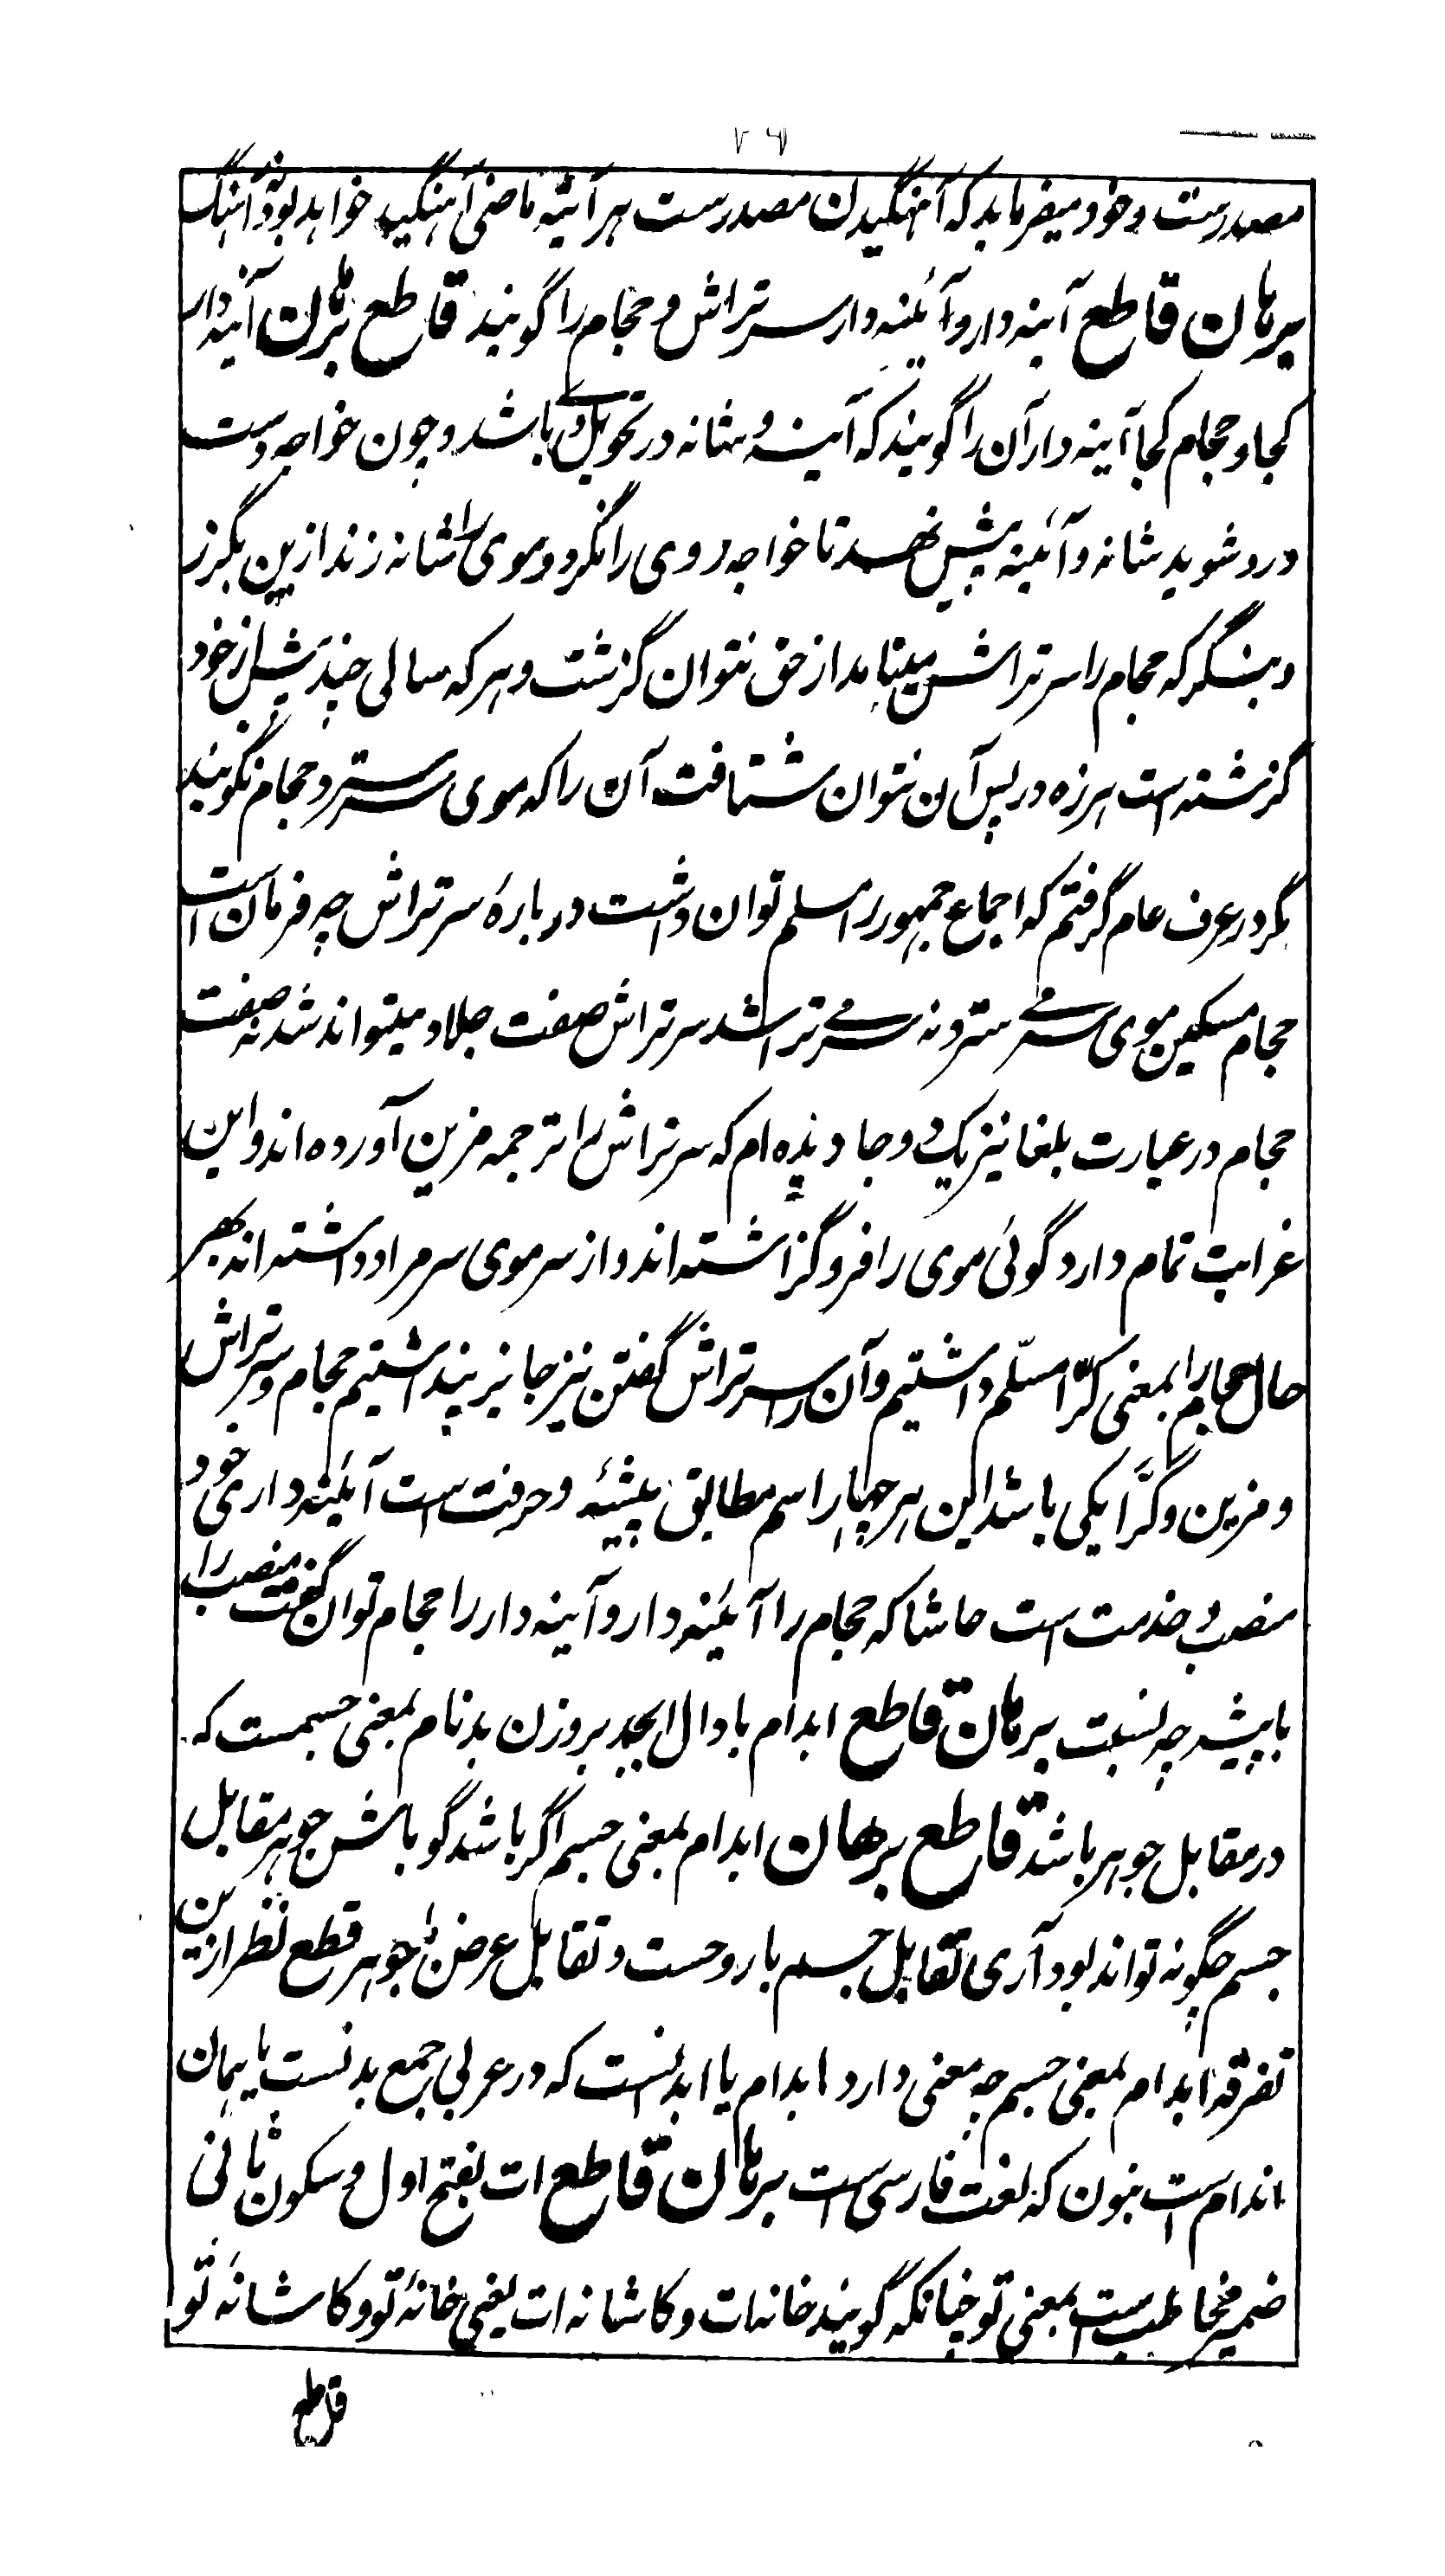 ۲۶
مصدرست و خود میفرماید که آهنگیدن مصدرست هر آئینه ماضی آهنگید خواهد بود نه آهنگ
برهان قاطع آینه دار و آئینه دار سرتراش و حجام را گویند قاطع برهان آینه دار
کجا و حجام کجا آینه دار آن را گویند که آینه و شانه در تحویل وے باشد و چون خواجه دست
و رو شوید شانه و آئینه پیش نهد تا خواجه روی را نگرد و موی را شانه زند ازین بگزر
و بنگر که حجام را سرتراش مینامد از حق نتوان گزشت و هر که سالی چند پیش از خود
گزشته است هرزه در پس آن نتوان شتافت آن را که موی سر سترد حجام نگویند
مگر در عرف عام گرفتم که اجماع جمهور را مسلم توان داشت در بارهٔ سرتراش چه فرمان است
حجام مسکین موی سر مے سترد نه سر مے تراشد سرتراش صفت جلاد میتواند شد نه صفت
حجام در عبارت بلغا نیز یک دو جا دیده ام که سرتراش را ترجمه مزین آورده اند و این
غرابت تمام دارد گوئی موی را فرو گزاشته اند و از سر موی سر مراد داشته اند بهر
حال حجام را بمعنی گرّا مسلّم داشتیم و آن را سرتراش گفتن نیز جایز پنداشتیم حجام و سرتراش
و مزین و گرّا یکی باشد این هر چهار اسم مطابق پیشهٔ و حرفت است آئینه داری خود
منصب و خدمت است حاشا که حجام را آئینه دار و آینه دار را حجام توان گفت منصب را
با پیشه چه نسبت برهان قاطع ابدام با دال ابجد بر وزن بدنام بمعنی جسمست که
در مقابل جوهر باشد قاطع برهان ابدام بمعنی جسم اگر باشد گو باش جوهر مقابل
جسم چگونه تواند بود آری تقابل جسم با روحست و تقابل عرض با جوهر قطع نظر ازین
تفرقه ابدام بمعنی جسم چه معنی دارد ابدام یا ابدانست که در عربی جمع بدنست یا همان
اندام است بنون که لغت فارسی است برهان قاطع ات بفتح اول و سکون ثانی
ضمیر مخاطب است بمعنی تو چنانکه گویند خانه ات و کاشانه ات یعنی خانهٔ تو و کاشانهٔ تو
قاطع